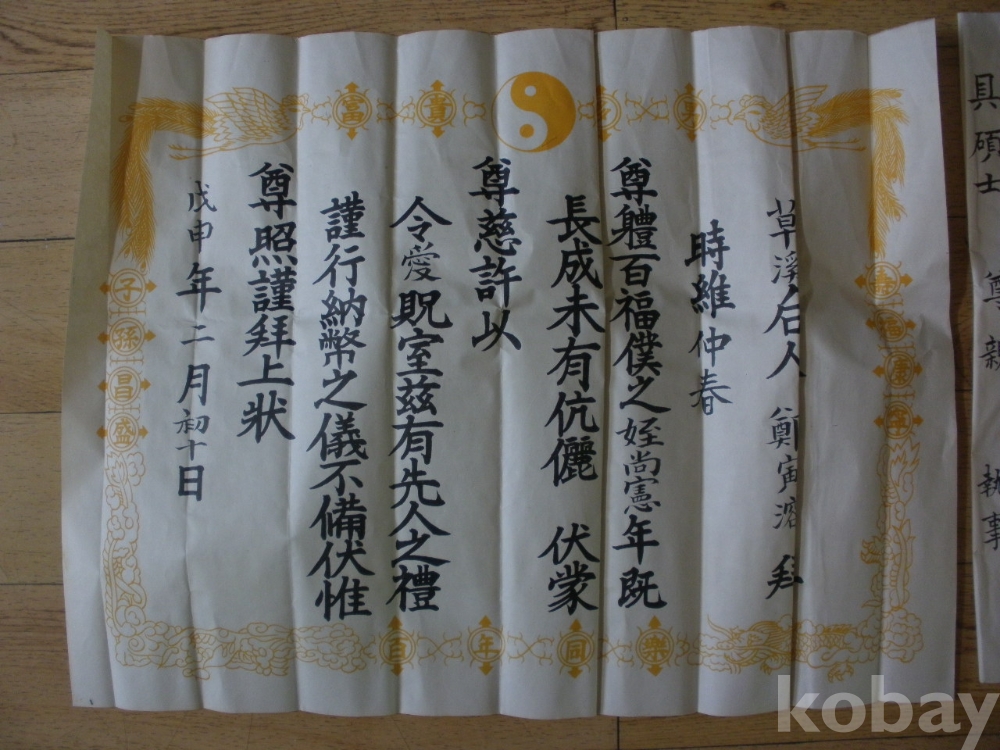 草溪后人 鄭寅溶 拜
時維仲春
尊軆百福僕之姪尚憲年旣
長成未有伉儷 伏蒙
尊慈許以
令愛貺室玆有先人之禮
謹行納幣之儀不備伏惟
尊照謹拜上狀
戊申年二月初十日
富貴
子孫昌盛
百年同樂
具碩士 尊親 執事
kobay